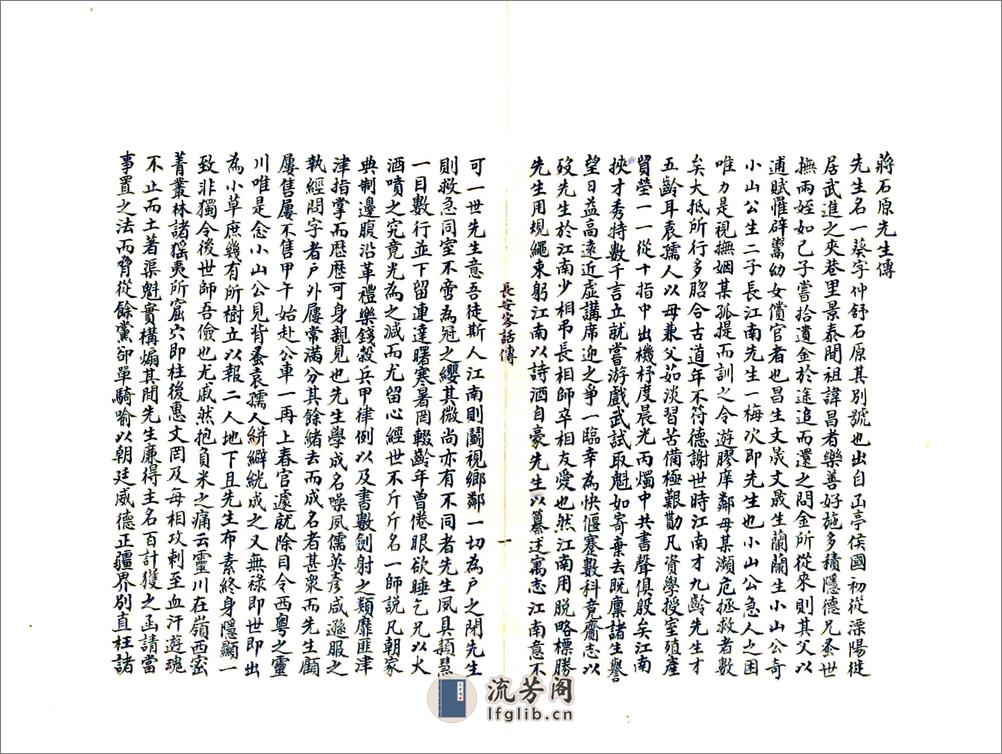 蔣石原先生傳
先生名一葵字仲舒石原其別號也出自𠙽亭侯國初從溧陽徙
居武進之夾巷里景泰間祖諱昌者樂善好施多積隱德兄叅世
撫兩姪如己子嘗拾遺金於途追而還之問金所從來則其父以
逋賦罹辟鬻幼女償官者也昌生文晟文晟生蘭蘭生小山公奇
小山公生二子長江南先生一梅次即先生也小山公急人之困
唯力是視撫姻某孤提而訓之令遊膠庠鄰母某瀕危拯救者數
矣大抵所行多昭合古道年不符德謝世時江南才九齡先生才
五齡耳袁孺人以母兼父茹淡習苦備極艱勩凡資學授室殖產
貿塋一一從十指中出機杼度晨光丙燭中共書聲俱殷矣江南
挾才秀持數千言立就嘗游戲武試取魁如寄棄去既廩諸生譽
望日益高遠近虛講席迎之爭一臨幸為快偃蹇數科竟齎志以
歿先生於江南少相弔長相師卒相友愛也然江南用脫略標勝
先生用規繩束躬江南以詩酒自豪先生以纂述寓志江南意不
長安客話傳
一
可一世先生意吾徒斯人江南則鬪視鄉鄰一切為戶之閉先生
則救急同室不啻為冠之纓其微尚亦有不同者先生夙具穎慧
一目數行並下留連達曙寒暑罔輟齡年曾倦眼欲睡乞兄以火
酒噴之究竟光為之減而尤留心經世不斤斤名一師說凡朝家
典制邊腹沿革禮樂錢穀兵甲律例以及書數劍射之類靡匪津
津指掌而歷歷可身親見也先生學成名噪夙儒英彥咸遜服之
執經問字者戶外屨常滿分其餘緒去而成名者甚衆而先生顧
屢售屢不售甲午始赴公車一再上春官遽就除目令西粤之靈
川唯是念小山公見背蚤袁孺人絣澼絖成之又無祿即世即出
為小草庶幾有所樹立以報二人地下且先生布素終身隱顯一
致非獨令後世師吾儉也尤戚然抱負米之痛云靈川在嶺西密
菁叢林諸猺夷所窟穴即柱後惠文罔及每相攻剌至血汗遊魂
不止而土著渠魁實構煽其間先生廉得主名百計獲之函請當
事置之法而脅從餘黨卻單騎喻以朝廷威德正疆界別直枉諸
流芳阁
lfglib.cn